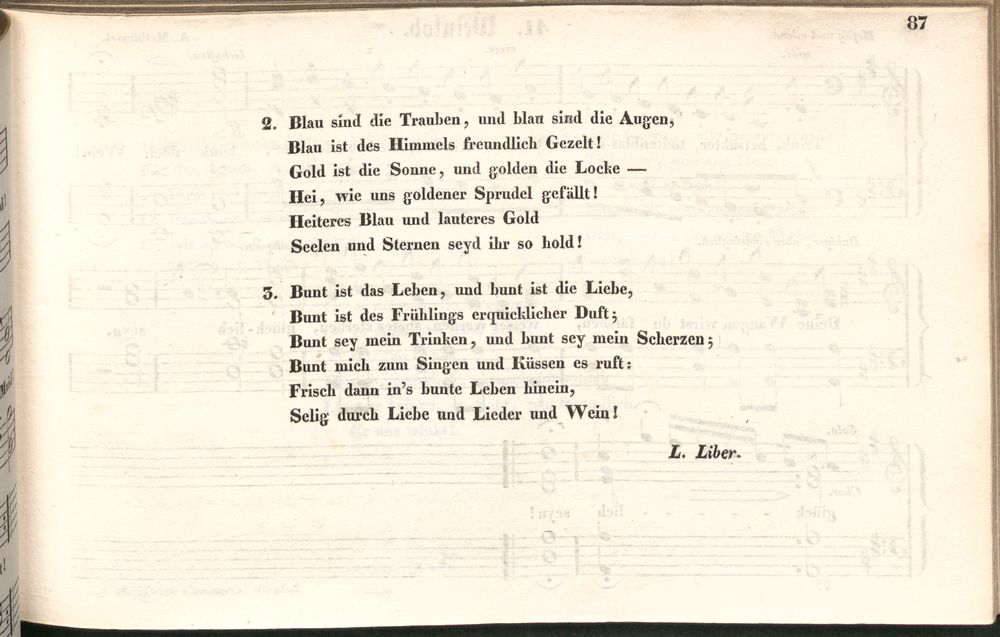 87
2. Blau sind die Trauben, und blau sind die Augen,
Blau ist des Himmels freundlich Gezelt!
Gold ist die Sonne, und golden die Locke —
Hei, wie uns goldener Sprudel gefällt!
Heiteres Blau und lauteres Gold
Seelen und Sternen seyd ihr so hold!
3. Bunt ist das Leben, und bunt ist die Liebe,
Bunt ist des Frühlings erquicklicher Duft;
Bunt sey mein Trinken, und bunt sey mein Scherzen;
Bunt mich zum Singen und Küssen es ruft:
Frisch dann in's bunte Leben hinein,
Selig durch Liebe und Lieder und Wein!
L. Liber.